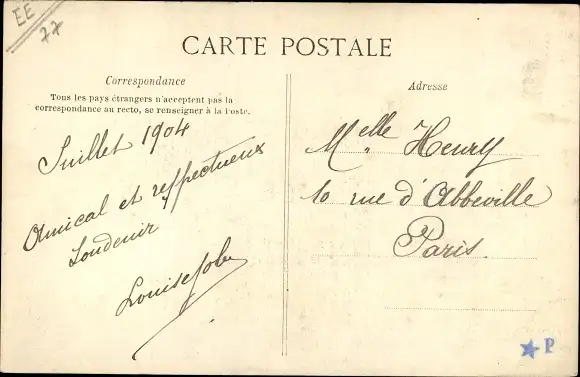 EE
77
CARTE POSTALE
Correspondance
Tous les pays étrangers n'acceptent pas la
correspondance au recto, se renseigner à la Poste.
Juillet 1904
Amical et respectueux
Souvenir
Adresse
Melle Henry
10 rue d'Abbeville
Paris.
P